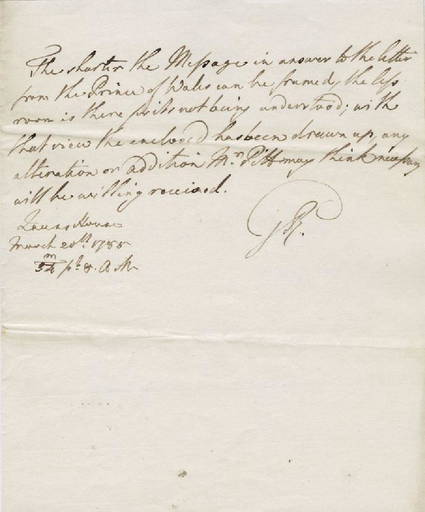 The shorter the Message in answer to the letter
from the Prince of Wales can be framed, the less
room is there for its not being understood; with
that view the enclosed has been drawn up, any
alteration or addition Mr. Pitt may think necessary
will be willing received.
Queens House
March 20th. 1788
m
54 pt. 8. A.M.
GR.